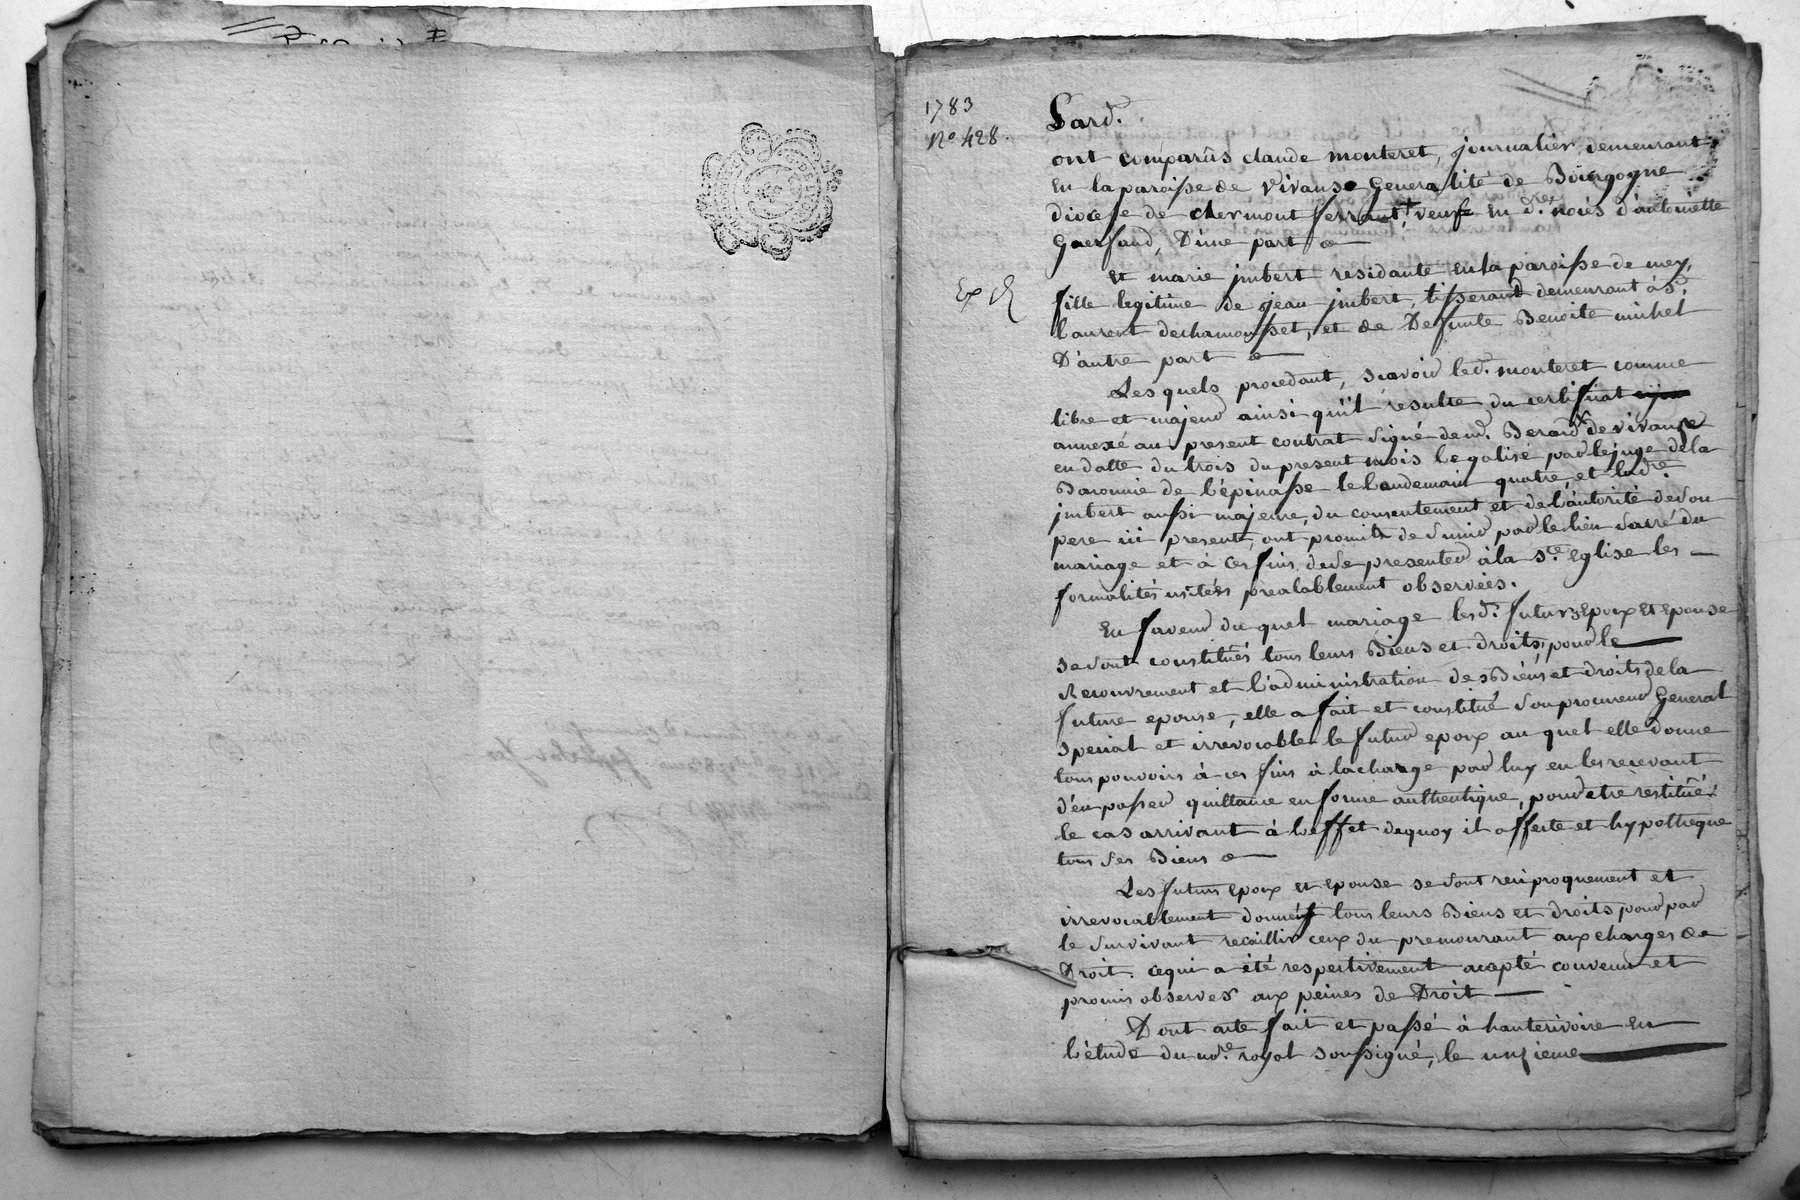 1783
N° 428.
Pard.
ont comparûs claude monteret, journalier, demeurant
en la paroisse de vivans Generalité de Bourgogne
diocese de clermont ferrant, veuf en d.res noces d'antoinette
D'une part
Exp
Et marie jmbert residante en la paroisse de
fille legitime de jean jmbert, tisserand demeurant à St.
laurent dechamousset, et de Defunte Benoite michel
D'autre part
Lesquels procedant, sçavoir led. monteret comme
libre et majeur ainsi qu'il resulte du certificat
annexé au present contrat signé de mr. Berard de vivans
en datte du trois du present mois legalisé par le juge de la
Baronnie de l'épinasse le lendemain quatre, et lad.e
jmbert aussi majeure, du consentement et de l'autorité de son
pere ici present, ont promis de s'unir par le lien sacré du
mariage et à ces fins de se presenter à la Ste. Eglise les
formalités usitées prealablement observées.
En faveur du quel mariage lesd. futurs Epoux et Epouse
se sont constitués tous leurs Biens et droits, pour le
Recouvrement et l'administration des Biens et droits de la
future epouse, elle a fait et constitué son procureur General
special et irrevocable le futur epoux au quel elle donne
tous pouvoirs à ces fins à la charge par luy en les recevant
d'en passer quittance en forme authentique, pour etre restitué
le cas arrivant à l'effet de quoy il affecte et hypotheque
tous ses Biens
Les futurs Epoux et Epouse se sont reciproquement et
irrevocablement donnés tous leurs Biens et droits pour par
le survivant recuillir ceux du premourant aux charges de
Droit. ce qui a été respectivement accepté convenu et
promis observer aux peines de Droit
Dont acte fait et passé à hauterivoire en
l'étude du no.re royal soussigné, le unzieme